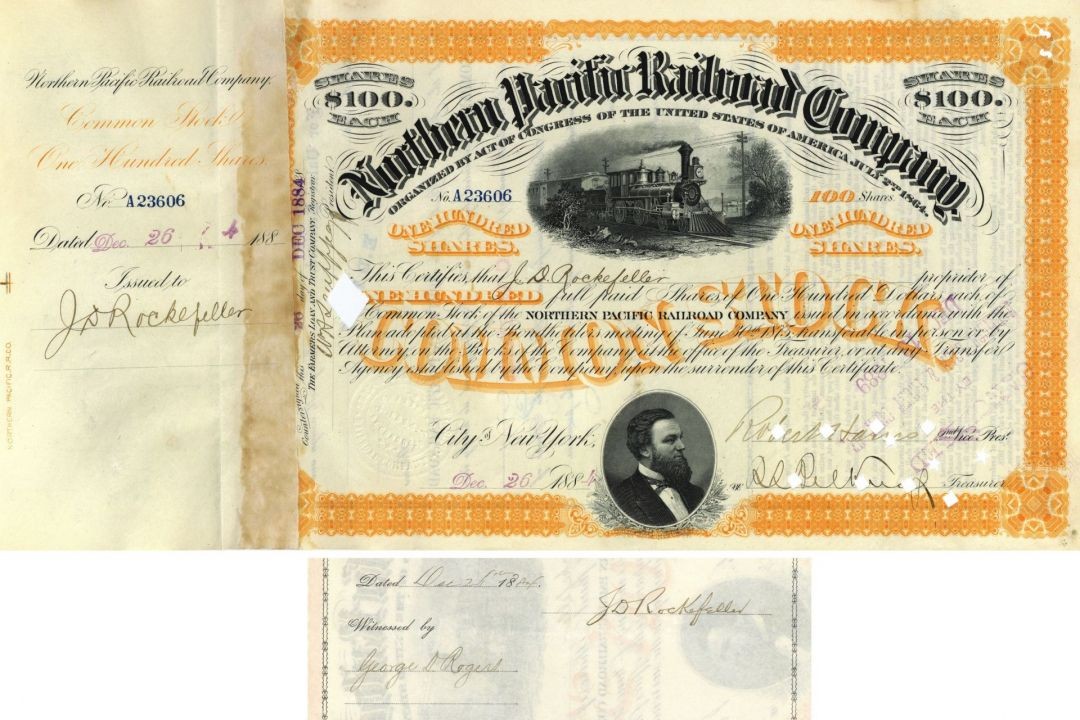 Northern Pacific Railroad Company.
Common Stock
One Hundred Shares.
No. A23606
Dated Dec. 26 188 4
Issued to
J D Rockefeller
NORTHERN PACIFIC R.R.CO.
Countersigned this 26 day of DEC 1884
THE FARMERS' LOAN AND TRUST COMPANY, Registrar.
President.
SHARES $100. EACH
Northern Pacific Railroad Company,
SHARES $100. EACH
ORGANIZED BY ACT OF CONGRESS OF THE UNITED STATES OF AMERICA JULY 2ND 1864.
No. A23606
100 Shares.
ONE HUNDRED SHARES.
ONE HUNDRED SHARES.
This Certifies that J. D. Rockefeller proprietor of
ONE HUNDRED full paid Shares of One Hundred Dollars each of
Common Stock of the NORTHERN PACIFIC RAILROAD COMPANY issued in accordance with the
Plan adopted at the Bondholders meeting of June 30th 1875, transferable in person or by
Attorney, on the Books of the Company at the office of the Treasurer, or at any Transfer
Agency established by the Company upon the surrender of this Certificate.
COMMON STOCK
City of New York,
Dec. 26 1884
Robert Harris Vice Prest.
Treasurer
Dated Dec 26th 1884.
J D Rockefeller
Witnessed by
George D Rogers